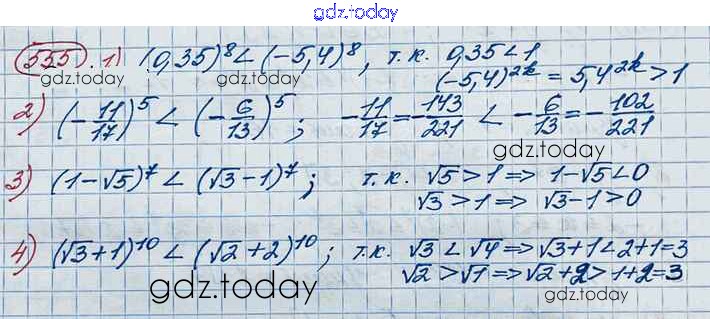 gdz.today
555. 1) (0,35)⁸ < (-5,4)⁸, т.к. 0,35 < 1
gdz.today
(-5,4)²ᵏ = 5,4²ᵏ > 1
2) (-11/17)⁵ < (-6/13)⁵; -11/17 = -143/221 < -6/13 = -102/221
gdz.today
3) (1-√5)⁷ < (√3-1)⁷; т.к. √5 > 1 => 1-√5 < 0
√3 > 1 => √3-1 > 0
4) (√3+1)¹⁰ < (√2+2)¹⁰; т.к. √3 < √4 => √3+1 < 2+1 = 3
√2 > √1 => √2+2 > 1+2 = 3
gdz.today
gdz.today